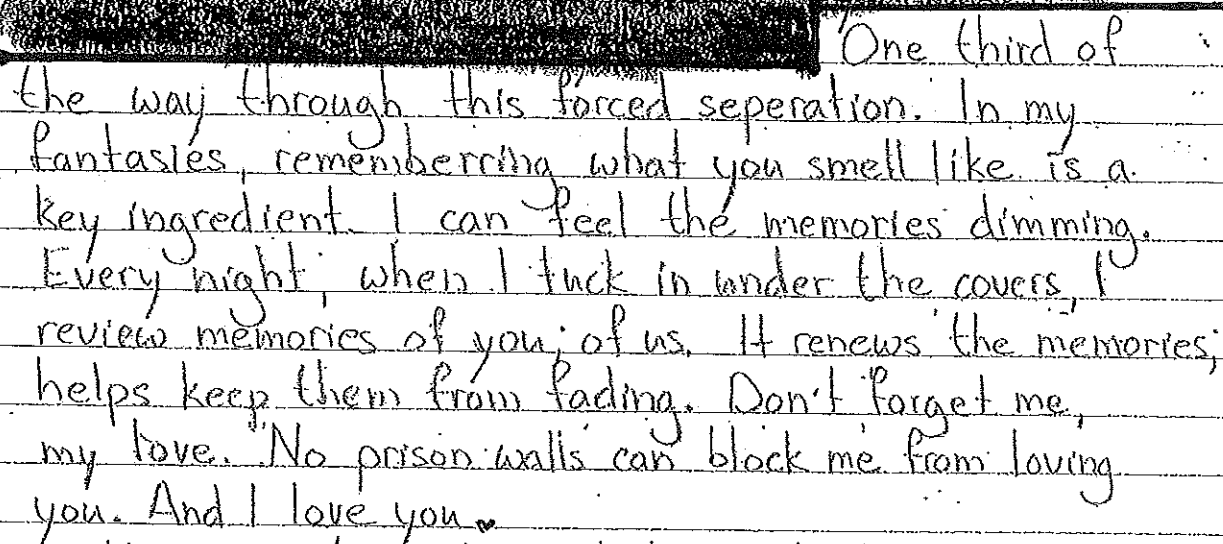 One third of
the way through this forced seperation. In my
fantasies, rememberring what you smell like is a
key ingredient. I can feel the memories dimming.
Every night, when I tuck in under the covers, I
review memories of you; of us. It renews the memories;
helps keep them from fading. Don't forget me,
my love. No prison walls can block me from loving
you. And I love you.